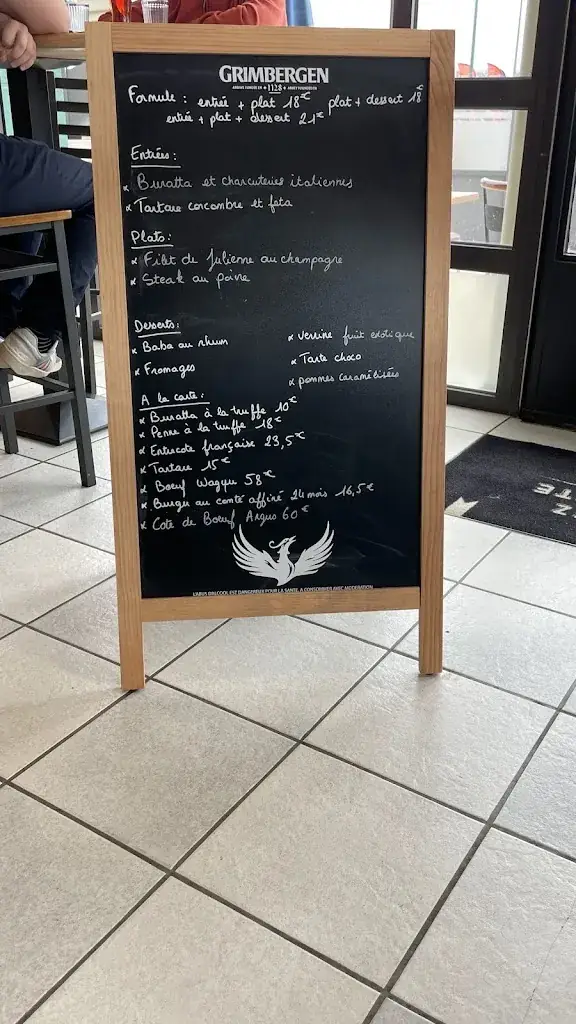 GRIMBERGEN
1128
Formule : entrée + plat 18€ plat + dessert 18€
entrée + plat + dessert 21€
Entrées :
x Buratta et charcuteries italiennes
x Tartare concombre et feta
Plats :
x Filet de Julienne au champagne
x Steak au poivre
Desserts :
x Baba au rhum
x Fromages
x verrine fruit exotique
x Tarte choco
x pommes caramélisées
A la carte :
x Buratta à la truffe 10€
x Penne à la truffe 18€
x Entrecote française 23,5€
x Tartare 15€
x Boeuf Wagyu 58€
x Burger au comté affiné 24 mois 16,5€
x Cote de Boeuf Angus 60€
L'ABUS D'ALCOOL EST DANGEREUX POUR LA SANTÉ. À CONSOMMER AVEC MODÉRATION.